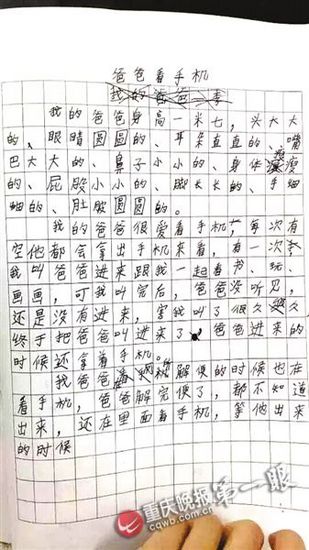 爸爸看手机
我的爸爸
我的爸爸身高一米七，头大大
的、眼睛圆圆的、耳朵直直的、嘴
巴大大的、鼻子小小的、身体瘦瘦
的、屁股小小的、脚长长的、手细
细的、肚皮圆圆的。
我的爸爸很爱看手机，每次有
空他都会拿出手机来看，有一次
我叫爸爸进来跟我一起看书、玩、
画画，可我叫完后，爸爸没听见，
还是没有进来，害我叫了很久
终于把爸爸叫进来了，爸爸进来的
时候还拿着手机。
我爸爸解便的时候也在
看手机，爸爸解完便了，都不知道
出来，还在里面看手机，等他出来
的时候
重庆晚报 第一眼
www.cqwb.com.cn